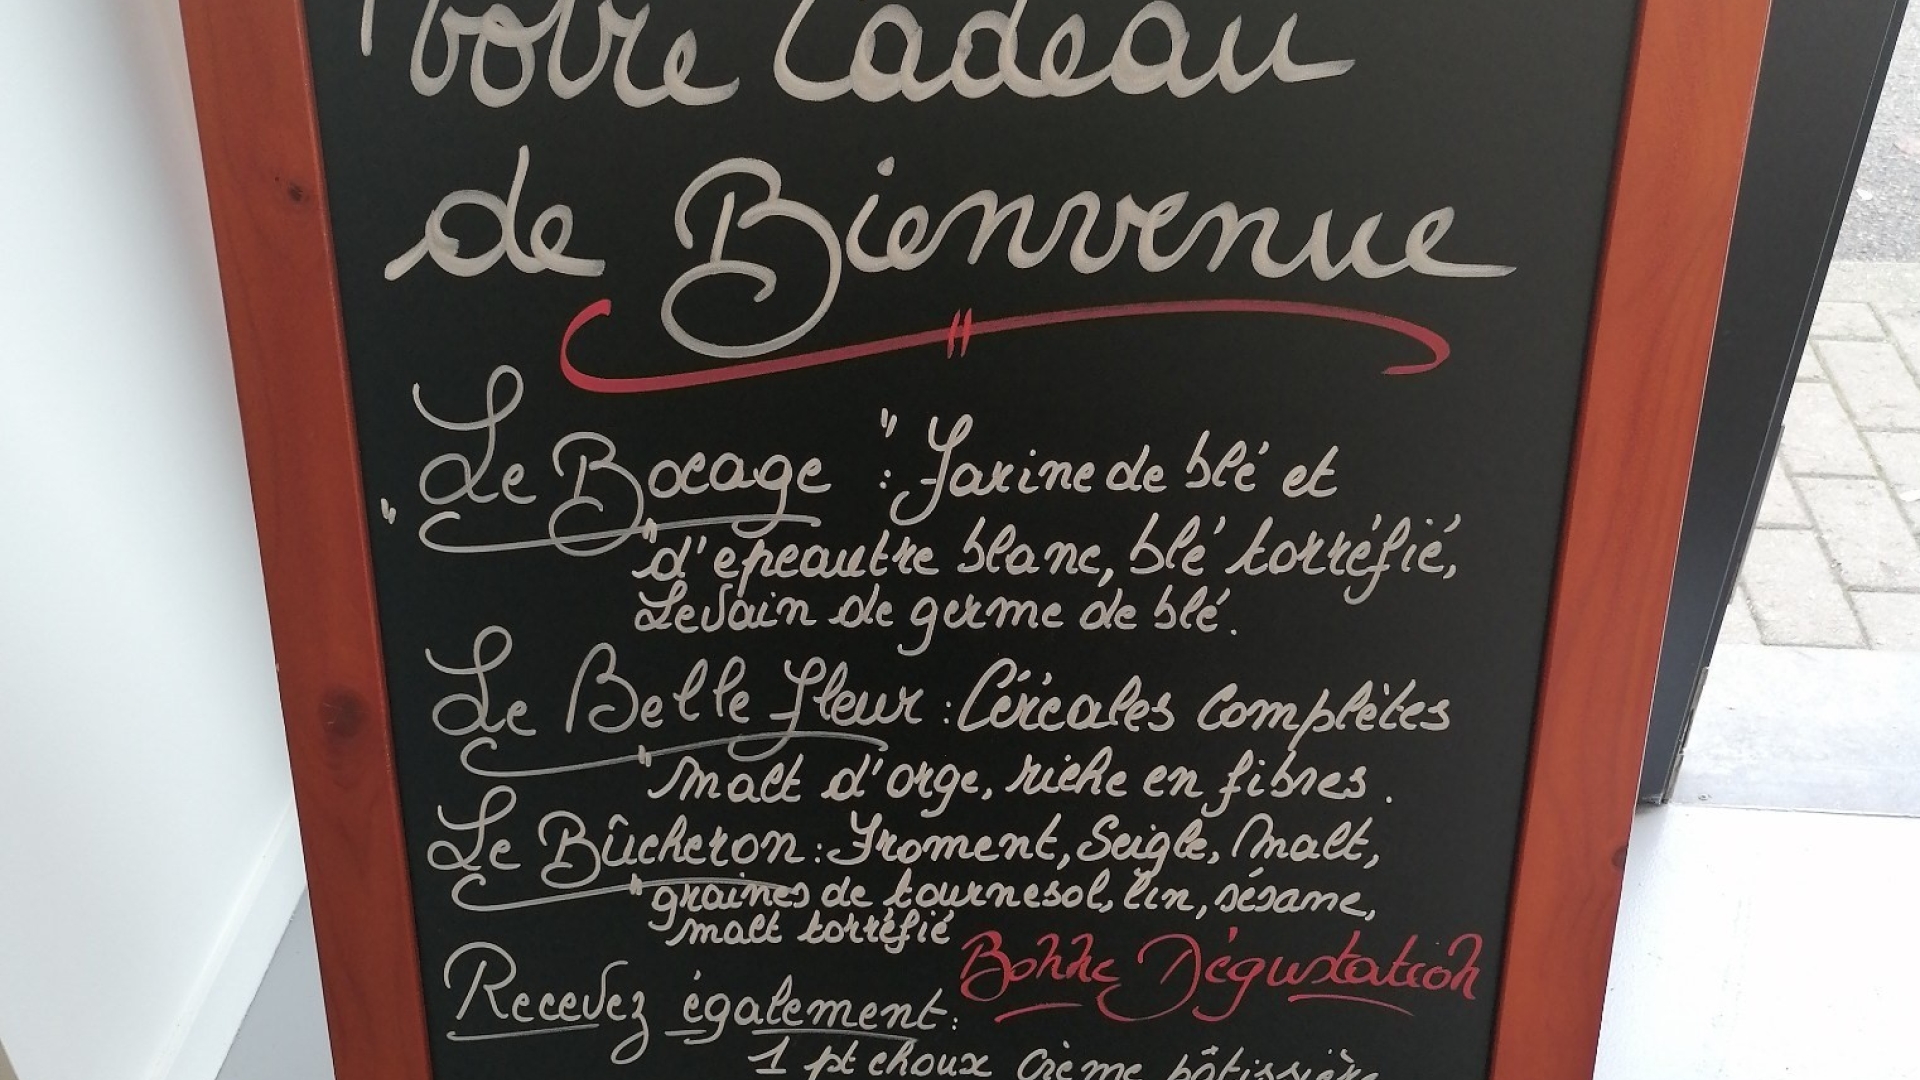 votre Cadeau
de Bienvenue
"Le Bocage": Farine de blé et
"d'epeautre blanc, blé torréfié,
Levain de germe de blé.
Le Belle fleur: Céréales complètes
"malt d'orge, riche en fibres.
Le Bûcheron: Froment, Seigle, Malt,
"graines de tournesol, lin, sésame,
malt torréfié
Bonne Dégustation
Recevez également:
1 pt choux crème pâtissière